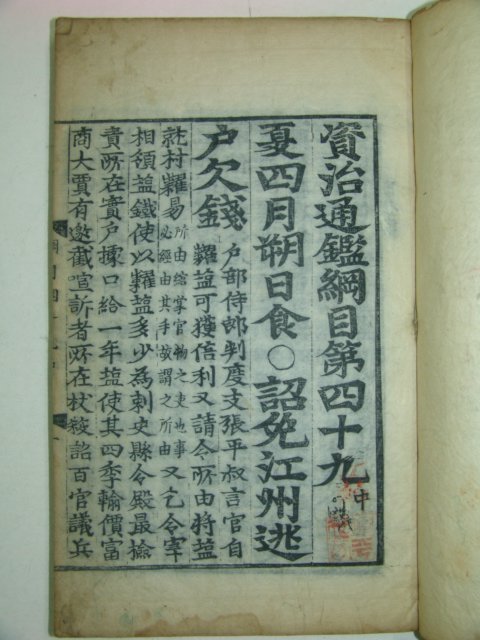 資治通鑑綱目第四十九 中
夏四月朔日食○詔免江州逃
戶欠錢 戶部侍郎判度支張平叔言官自
糶盐可獲倍利又請令所由將盐
就村糶易所由綰掌官物之吏也事必經由其手故謂之所由又乞令宰
相領盐鐵使以糶盐多少為刺史縣令殿最檢
責所在實戶據口給一年盐使其四季輸價富
商大賈有邀截喧訴者所在杖殺詔百官議兵